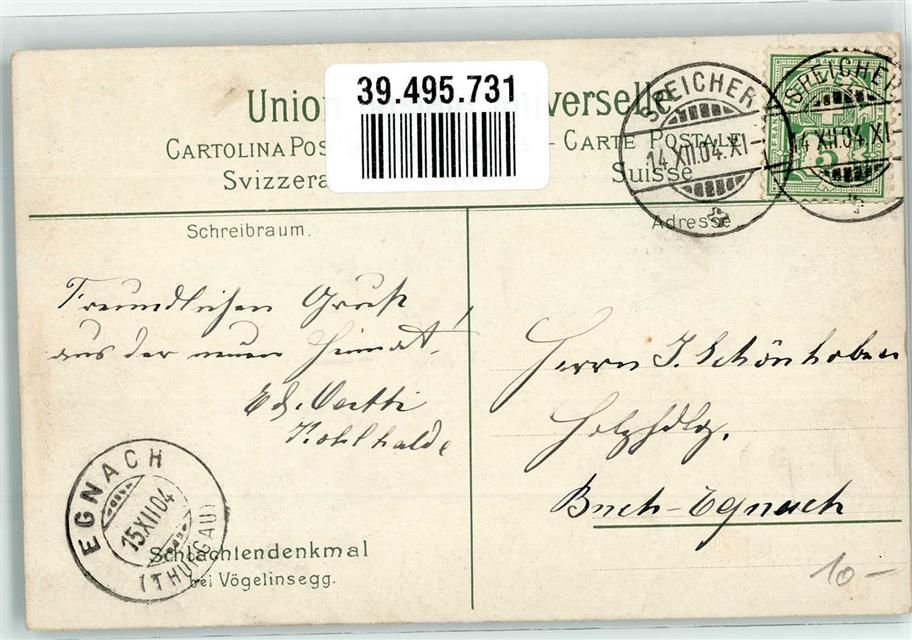 39.495.731
Union Universelle
CARTOLINA POS - CARTE POSTALE
Svizzera Suisse
SPEICHER
14.XII.04.XI-
SPEICHER
14.XII.04.XI
5
Schreibraum.
Adresse
Freundlichen Gruß
aus der neuen Heimat!
Ed. Oertli
Kohlhalde
Herrn J. Schönholzer
Holzhdlg.
Buch-Egnach
EGNACH
15.XII.04
(THURGAU)
Schlachtendenkmal
bei Vögelinsegg.
10-